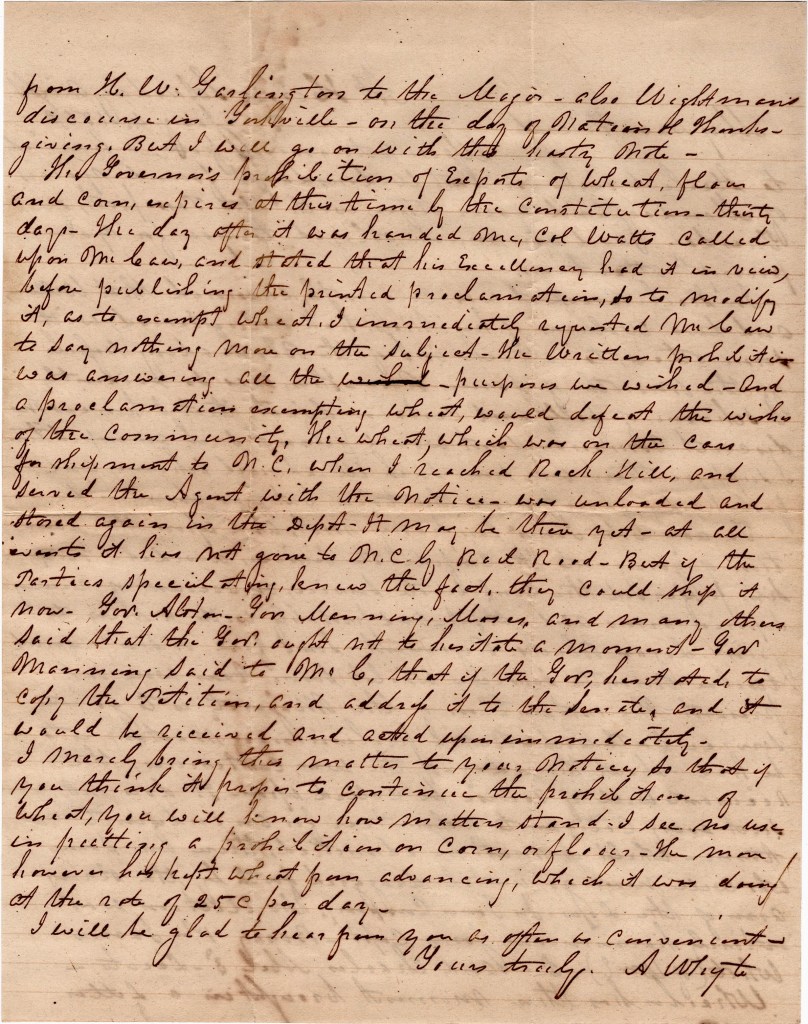 from H. W. Garlington to the Major - also Wightman's
discourse in Yorkville - on the day of National Thanks-
giving. But I will go on with this hasty note -
The Governor's prohibition of Exports of wheat, flour
and corn, expires at this time by the Constitution - thirty
days - The day after it was handed me, Col Watts called
upon McCaw, and stated that his Excellency had it in view,
before publishing the printed proclamation, so to modify
it, as to exempt wheat. I immediately requested McCaw
to say nothing more on the subject - the written prohibition
was answering all the - purposes we wished - and
a proclamation exempting wheat, would defeat the wishes
of the Community. The wheat, which was on the cars
for shipment to N.C. when I reached Rock Hill, and
served the Agent with the notice - was unloaded and
stored again in the Dept - It may be there yet - at all
events it has not gone to N.C by Rail Road - But if the
Parties speculating, knew the fact, they could ship it
now - Gov. - Gov Manning, Moses, and many others
said that the Gov. ought not to hesitate a moment - Gov
Manning said to McC, that if the Gov, hesitated, to
copy the Petition, and address it to the Senate, and it
would be received and acted upon immediately -
I merely bring this matter to your notice, so that if
you think it proper to continue the prohibition of
Wheat, you will know how matters stand. I see no use
in putting a prohibition on Corn, or flour - The move
however has kept wheat from advancing, which it was doing
at the rate of 25c per day -
I will be glad to hear from you as often as convenient -
Yours truly. A Whyte